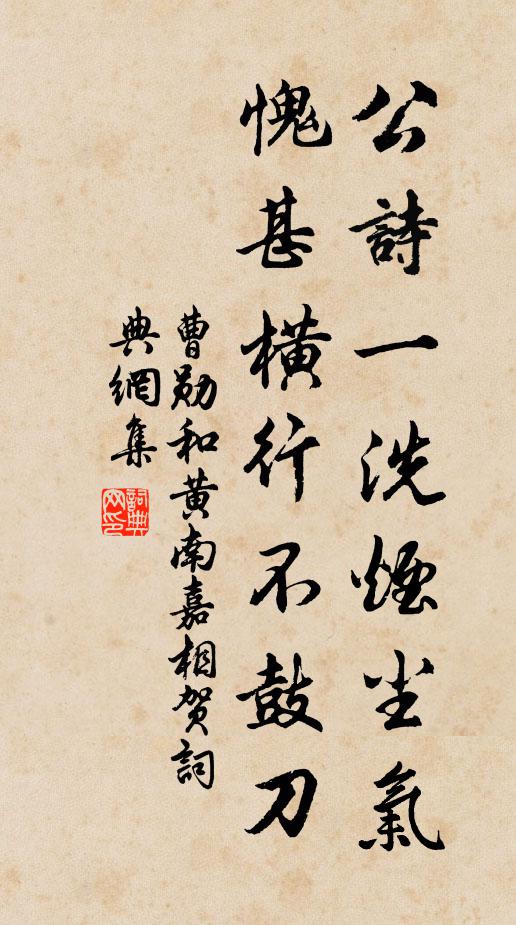 公詩一洗煙尘氣
愧甚橫行不鼓刀
曹勛和黃南嘉相贺詞
典網集
詞典網印